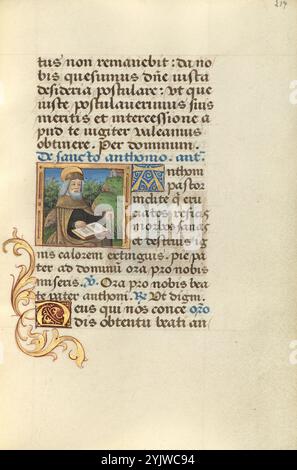 tus non remanebit : da no
bis quesumus dñe iusta
desideria postulare : Ut que
iuste postulauerimus suis
meritis et intercessione a
pud te iugiter valeamus
obtinere. Per dominum.
De sancto anthonio. antˉ.
Anthoni
pastor
inclite q̃ cru
ciatos reficis
morbos sanas
et destruis ig
nis calorem extinguis. pie pa
ter ad dominũ ora pro nobis
miseris. V. Ora pro nobis bea
te pater anthoni. R. Ut digni.
Deus qui nos conce oro
dis obtentu beati an
alamy
Image ID: 2YJWC94
www.alamy.com